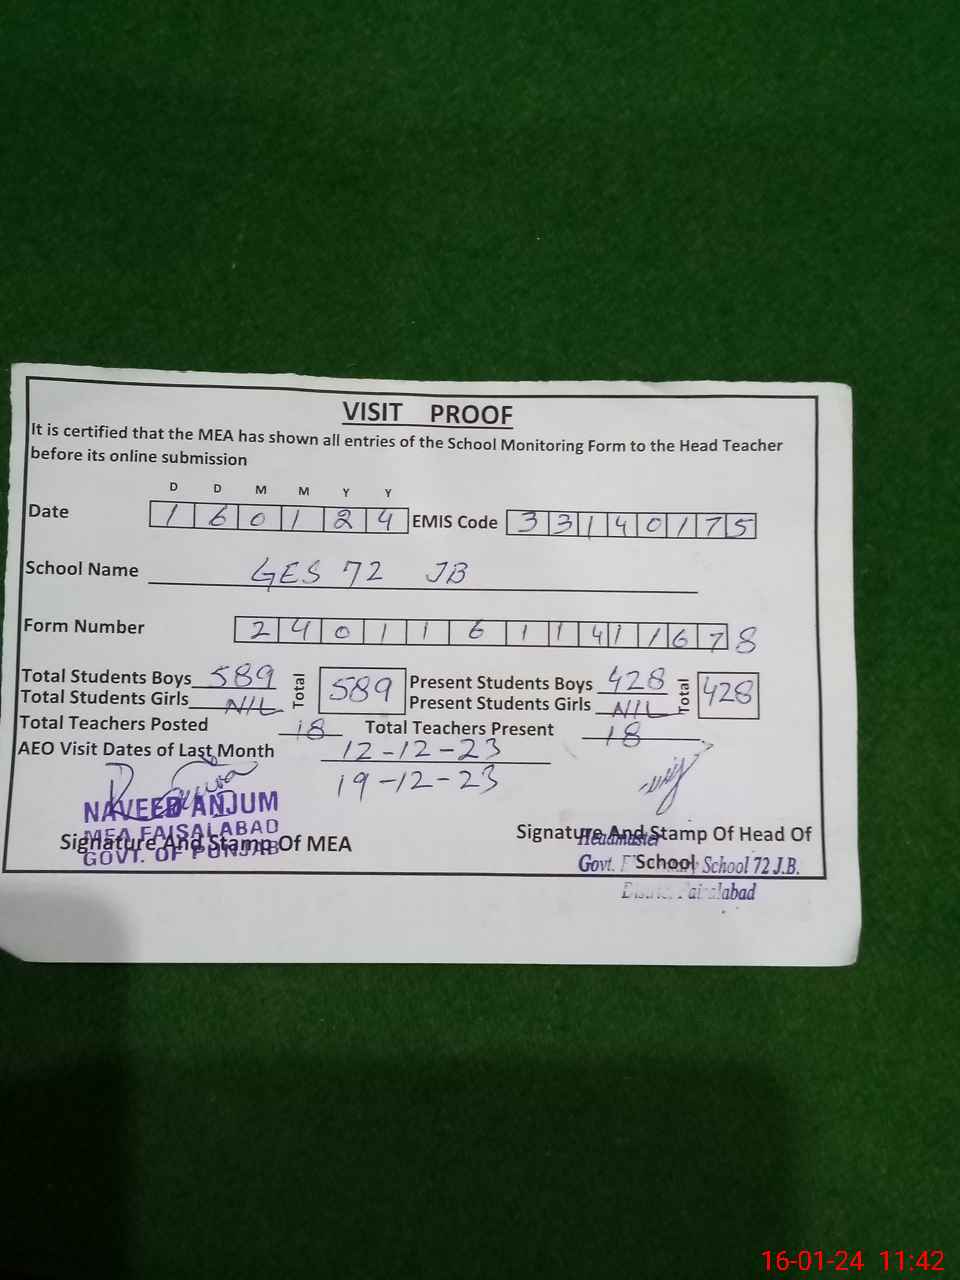 VISIT PROOF
It is certified that the MEA has shown all entries of the School Monitoring Form to the Head Teacher
before its online submission
D D M M Y Y
Date 1 6 0 1 2 4 EMIS Code 3 3 1 4 0 1 7 5
School Name GES 72 JB
Form Number 2 4 0 1 1 6 1 1 4 1 1 6 7 8
Total Students Boys 589 Total 589 Present Students Boys 428 Total 428
Total Students Girls NIL Present Students Girls NIL
Total Teachers Posted 18 Total Teachers Present 18
AEO Visit Dates of Last Month 12-12-23
19-12-23
NAVEED ANJUM
MEA FAISALABAD
GOVT. OF PUNJAB
Signature And Stamp Of MEA
Signature And Stamp Of Head Of
School
Headmaster
Govt. School 72 J.B.
District Faisalabad
16-01-24 11:42